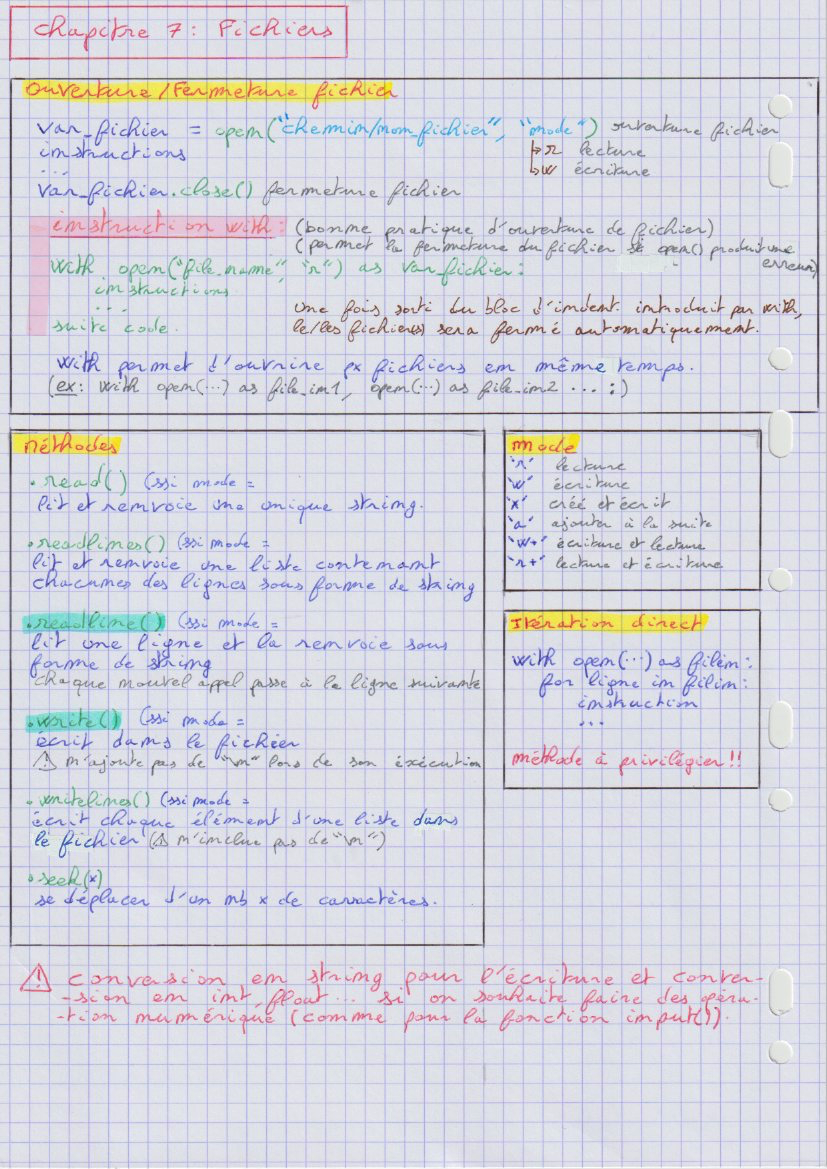 Chapitre 7 : Fichiers
Ouverture/Fermeture fichier
var_fichier = open("chemin/nom_fichier", "mode") ouverture fichier
instructions
↳ r lecture
...
↳ w écriture
var_fichier.close() fermeture fichier
instruction with : (bonne pratique d'ouverture de fichier)
(permet la fermeture du fichier si open() produit une erreur)
with open("file_name", "r") as var_fichier :
instructions
...
suite code.
Une fois sorti du bloc d'indent. introduit par with,
le/les fichier(s) sera fermé automatiquement.
with permet d'ouvrire px fichiers en même temps.
(ex: with open(...) as file_in1, open(...) as file_in2 ... :)
Méthodes
.read() (ssi mode =
lit et renvoie une unique string.
.readlines() (ssi mode =
lit et renvoie une liste contenant
chacunes des lignes sous forme de string
.readline() (ssi mode =
lit une ligne et la renvoie sous
forme de string
chaque nouvel appel passe à la ligne suivante
.write() (ssi mode =
écrit dans le fichier
⚠ n'ajoute pas de "\n" lors de son éxécution
.writelines() (ssi mode =
écrit chaque élément d'une liste dans
le fichier (⚠ n'inclue pas de "\n")
.seek(x)
se déplacer d'un nb x de carractères.
mode
'r' lecture
'w' écriture
'x' créé et écrit
'a' ajouter à la suite
'w+' écriture et lecture
'r+' lecture et écriture
Itération direct
with open(...) as filein :
for ligne in filin :
instruction
...
méthode à privilégier !!
⚠ conversion en string pour l'écriture et conver-
-sion en int, float ... si on souhaite faire des opéra-
-tion numérique (comme pour la fonction input()).